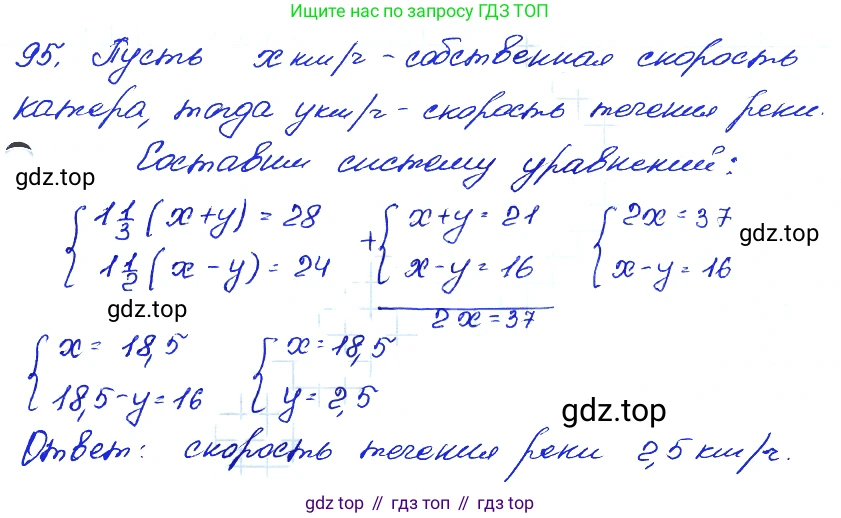 Ищите нас по запросу ГДЗ ТОП
95. Пусть x км/ч - собственная скорость
катера, тогда y км/ч - скорость течения реки.
Составим систему уравнений:
gdz.top
{ 1 1/3 (x+y) = 28
1 1/2 (x-y) = 24
+ { x+y = 21
x-y = 16
2x = 37
{ 2x = 37
x-y = 16
gdz.top
gdz.top
{ x = 18,5
18,5-y = 16
{ x = 18,5
y = 2,5
gdz.top
Ответ: скорость течения реки 2,5 км/ч.
gdz top // гдз топ // gdz.top